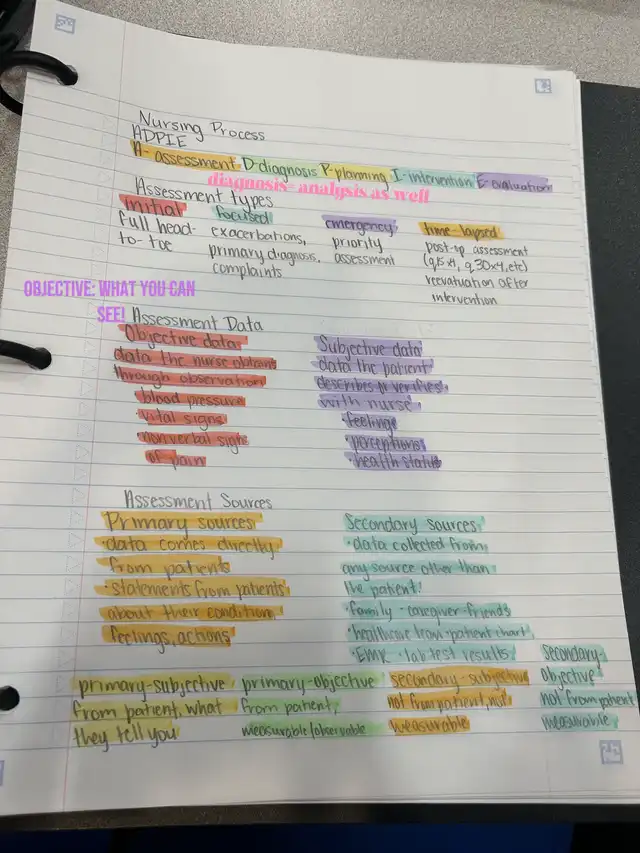 Nursing Process
ADPIE
A- assessment D-diagnosis P-planning I-intervention E-evaluation
diagnosis- analysis as well
Assessment types
Initial
full head-
to-toe
focused
exacerbations,
primary diagnosis,
complaints
emergency
priority
assessment
time-lapsed
post-op assessment
(q15x4, q30x4, etc)
reevaluation after
intervention
OBJECTIVE: WHAT YOU CAN
SEE!
Assessment Data
Objective data
data the nurse obtains
through observation
·blood pressure
·vital signs
·nonverbal signs
of pain
Subjective data
data the patient
describes or verifies
with nurse
·feelings
·perceptions
·health status
Assessment Sources
Primary sources
·data comes directly
from patients
·statements from patients
about their condition,
feelings, actions
Secondary sources
·data collected from
any source other than
the patient
·family ·caregiver ·friends
·healthcare team ·patient chart
·EMR ·lab test results
primary-subjective
from patient, what
they tell you
primary-objective
from patient,
measurable/observable
secondary-subjective
not from patient, not
measurable
secondary-
objective
not from patient
measurable